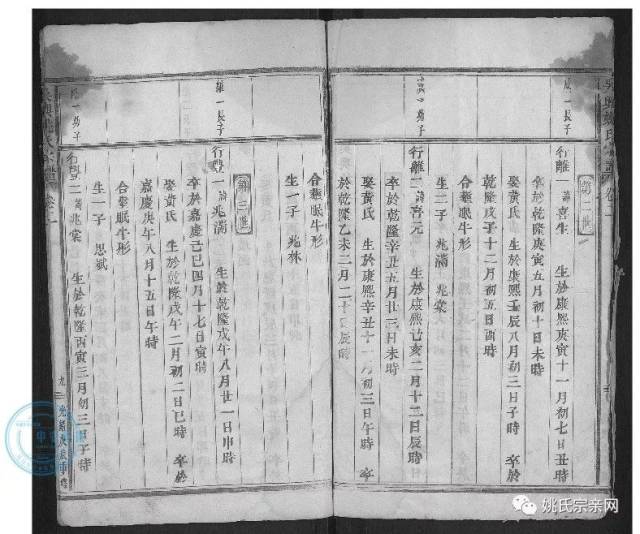 吳興姚氏宗譜
第二世
行離一 諱喜生 生於康熙庚寅十一月初七日丑時
卒於乾隆庚寅五月初十日未時
娶黃氏 生於康熙壬辰八月初三日子時 卒於
乾隆戊子十二月初五日酉時
合葬眠牛形
生二子 兆滿 兆棠
行離二 諱喜元 生於康熙己亥二月十二日辰時
卒於乾隆辛丑五月廿三日未時
娶黃氏 生於康熙辛丑十一月初三日午時 卒
於乾隆乙未二月二十日辰時
合葬眠牛形
生一子 兆林
第三世
離一長子
行 一 諱兆滿 生於乾隆戊午八月廿一日申時
卒於嘉慶己巳四月十七日寅時
娶黃氏 生於乾隆戊午二月初二日巳時 卒於
嘉慶庚午八月十五日午時
合葬眠牛形
生一子 思斌
離一勇子
行 二 諱兆棠 生於乾隆丙寅三月初三日子時
吳興姚氏宗譜 卷二
九
姚氏宗亲网